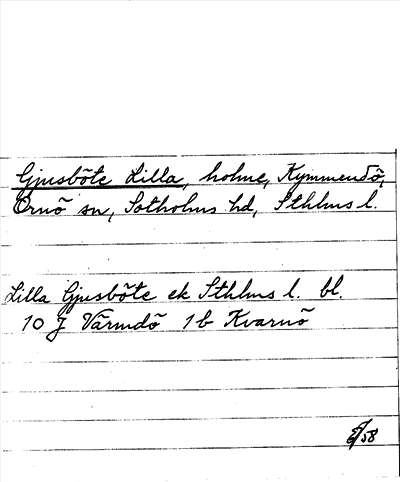 Gjusböte Lilla, holme, Kymmendö,
Ornö sn, Sotholms hd, Sthlms l.
Lilla Gjusböte ek Sthlms l. bl.
10 J Värmdö 1b Kvarnö
/58